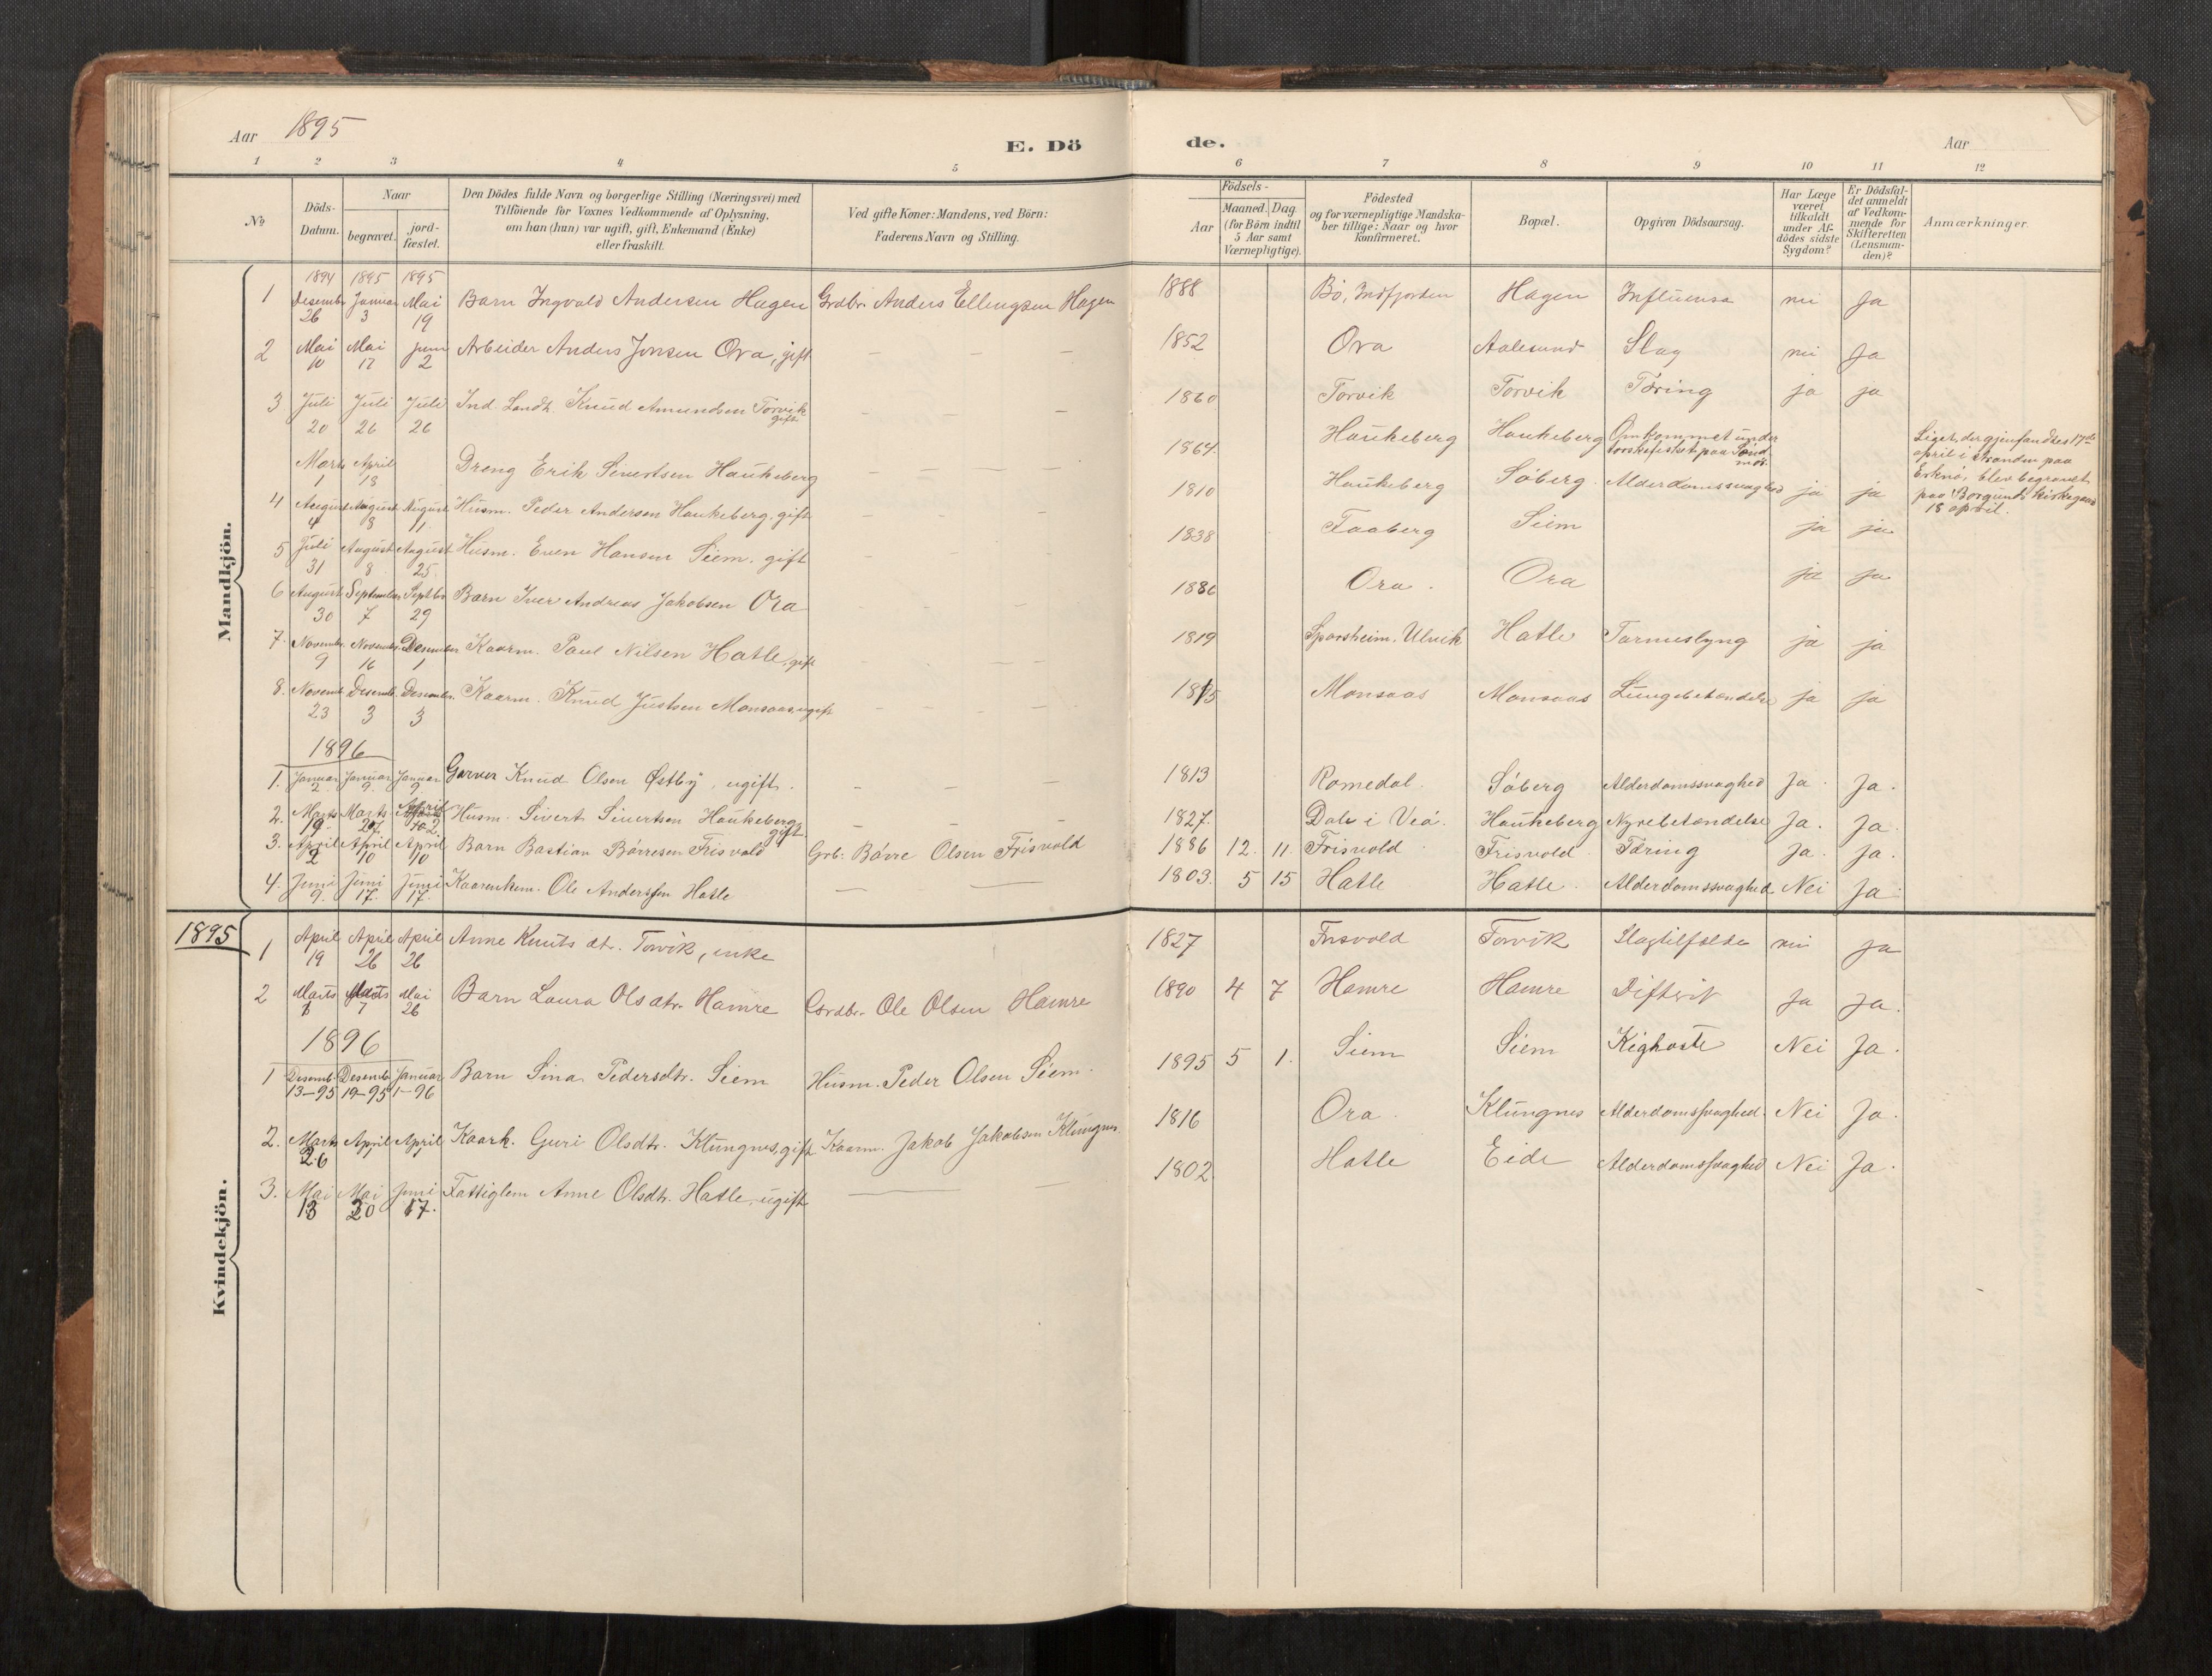 Aar 1895
E. Dö de.
Aar
1 2 3 4 5 6 7 8 9 10 11 12
No
Döds-Datum.
Naar
begravet.
jord-fæstet.
Den Dödes fulde Navn og borgerlige Stilling (Næringsvei) med
Tilföiende for Voxnes Vedkommende af Oplysning,
om han (hun) var ugift, gift, Enkemand (Enke)
eller fraskilt.
Ved gifte Koner: Mandens, ved Börn:
Faderens Navn og Stilling.
Födsels-
Aar
Maaned. Dag
(for Börn indtil
5 Aar samt
Værnepligtige).
Födested
og for værnepligtige Mandska-
ber tillige: Naar og hvor
konfirmeret.
Bopæl.
Opgiven Dödsaarsag.
Har Læge
været
tilkaldt
under Af-
dödes sidste
Sygdom?
Er Dödsfal-
det anmeldt
af Vedkom-
mende for
Skifteretten
(Lensman-
den)?
Anmærkninger.
Mandkjön.
1894 1895 1895
1 Desembr 26 Januar 3 Mai 19 Barn Ingvald Andersen Hagen Grdbr. Anders Ellingsen Hagen 1888 Bö, Indfjorden Hagen Influensa nei Ja
2 Mai 10 Mai 17 Juni 2 Arbeider Anders Jensen Ora, gift — — — 1852 Ora Aalesund Slag nei Ja
3 Juli 20 Juli 26 Juli 26 Ind. Landh. Knud Amundsen Torvik gift — — — 1860 Torvik Torvik Tæring ja ja
Marts 1 April 18 Dreng Erik Sivertsen Haukeberg — — — 1864 Haukeberg Haukeberg Omkommet under torskefisket paa Sønd-mør.
Liget, der gjenfandtes 17de
april i stranden paa
Erknö, blev begravet
paa Borgunds kirkegaard
18 april.
4 August 4 August 8 August 11 Husm. Peder Andersen Haukeberg, gift — — — 1810 Haukeberg Söberg Alderdomssvaghed ja ja
5 Juli 31 August 8 August 25. Husm. Even Hansen Siem. gift — — — 1838 Faaberg Siem ja ja
6 August 30 September 7 Septbr 29 Barn Iver Andreas Jakobsen Ora — 1886 Ora. Ora ja ja
7. Novembr. 9 Novembr. 16 Desember 1 Kaarm. Paul Nilsen Hatle, gift — — — 1819 Sparsheim. Ulvik Hatle Tarmuslyng ja ja
8. Novemb. 23 Desemb. 3 Desembr. 3 Kaarm. Knud Justsen Monsaas, ugift — — — 1815 Monsaas Monsaas Lungebetændelse ja ja
1896
1. Januar 2. Januar 9. Januar 9. Garver Knud Olsen Østby, ugift. — — — 1813 Romedal. Söberg Alderdomssvaghed Ja. Ja.
2. Marts 19 Marts 27. April 2 Husm. Sivert Sivertsen Haukeberg, gift — — — 1827. Dale i Veö. Haukeberg Nyrebetændelse Ja. Ja.
3. April 2 April 10 April 10 Barn Bastian Börresen Frisvold Grb: Börre Olsen Frisvold 1886 12. 11. Frisvold Frisvold Tæring Ja. Ja.
4. Juni 9. Juni 17. Juni 17. Kaarenkem. Ole Anderssen Hatle — — 1803. 5 15 Hatle Hatle. Alderdomssvaghed Nei Ja.
Kvindekjön.
1895
1 April 19 April 26 April 26 Anne Knuts dt. Torvik, enke 1827 Frisvold Torvik Slagtilfælde nei ja
2 Marts 1 Marts 7 Mai 26 Barn Laura Olsdtr. Hamre Grdbr. Ole Olsen Hamre 1890 4 7 Hamre Hamre Difterit Ja Ja.
1896
1 Desemb. 13–95 Desemb 19–95 Januar 1–96 Barn Sina Pedersdtr. Siem Husm. Peder Olsen Siem. 1895 5 1. Siem Siem Kighoste Nei Ja.
2. Marts 26 April April Kaark. Guri Olsdtr. Klungnes, gift Kaarm. Jakob Jakobsen Klungnes 1816 Ora. Klungnes Alderdomssvaghed. Nei Ja.
3. Mai 13 Mai 20 Juni 17. Fattiglem Anne Olsdtr. Hatle, ugift — — 1802 Hatle Eide Alderdomssvaghed Nei Ja.